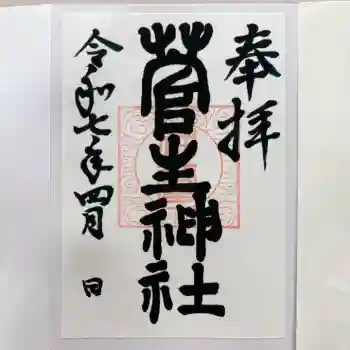 奉拝
菅生神社
令和七年四月 日